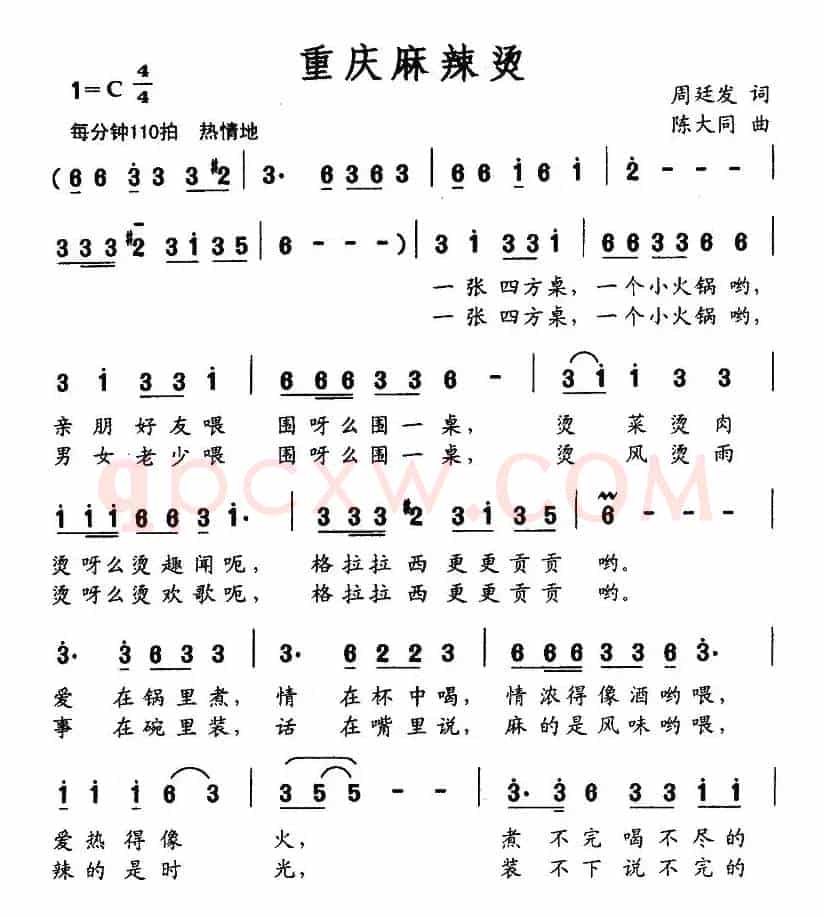 重庆麻辣烫
1=C 4/4
周廷发 词
每分钟110拍 热情地
陈大同 曲
(6 6 3 3 3 3 #2 | 3· 6 3 6 3 | 6 6 1 6 1 | 2 - - - |
3 3 3 #2 3 1 3 5 | 6 - - - ) | 3 1 3 3 1 | 6 6 3 3 6 6 |
一张四方桌，一个小火锅哟，
一张四方桌，一个小火锅哟，
3 1 3 3 1 | 6 6 6 3 3 6 - | 3 1 1 3 3 |
亲朋好友喂 围呀么围一桌， 烫菜烫肉
男女老少喂 围呀么围一桌， 烫风烫雨
gpcxw.COM
1 1 1 6 6 3 1· | 3 3 3 #2 3 1 3 5 | 6 - - - |
烫呀么烫趣闻呃， 格拉拉西更更贡贡 哟。
烫呀么烫欢歌呃， 格拉拉西更更贡贡 哟。
3· 3 6 3 3 | 3· 6 2 2 3 | 6 6 6 3 3 6 3· |
爱 在锅里煮， 情 在杯中喝， 情浓得像酒哟喂，
事 在碗里装， 话 在嘴里说， 麻的是风味哟喂，
1 1 1 6 3 | 3 5 5 - - | 3· 3 6 3 3 1 1 |
爱热得像 火， 煮不完喝不尽的
辣的是时 光， 装不下说不完的